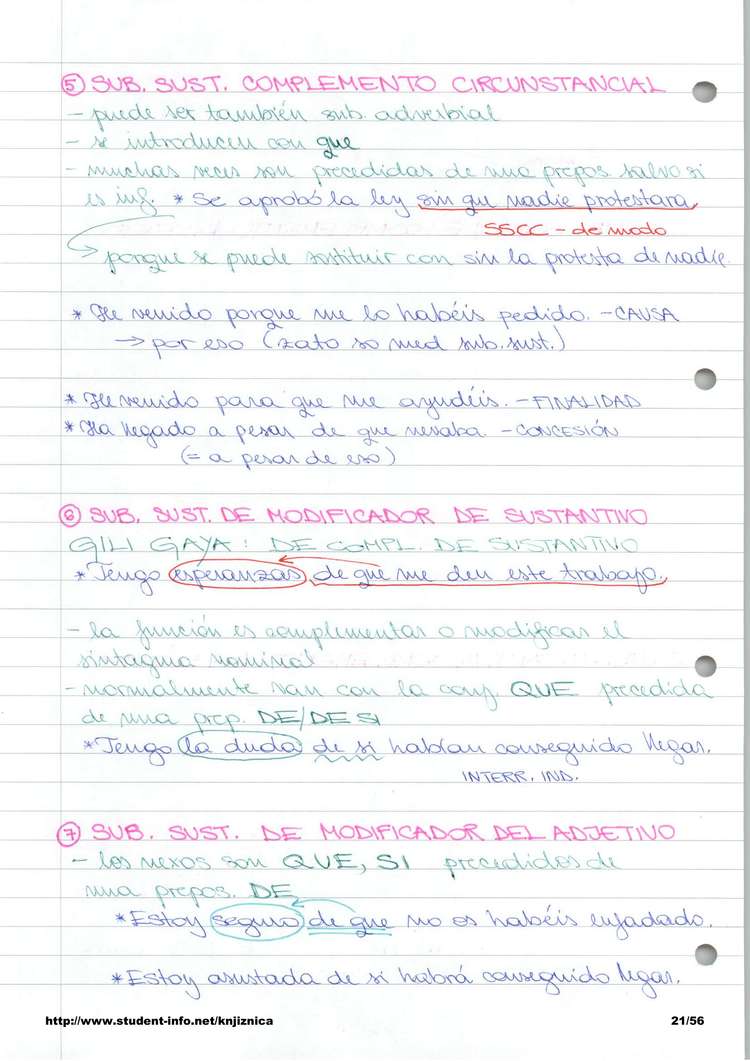 ⑤ SUB. SUST. COMPLEMENTO CIRCUNSTANCIAL
- puede ser también sub. adverbial
- se introducen con que
- muchas veces son precedidas de una prepos. salvo si
es inf. * Se aprobó la ley sin que nadie protestara,
SSCC - de modo
→ porque se puede sostituir con sin la protesta de nadie.
* He venido porque me lo habéis pedido. - CAUSA
→ por eso (zato so med sub. sust.)
* He venido para que me ayudéis. - FINALIDAD
* Ha llegado a pesar de que nevaba. - CONCESIÓN
(= a pesar de eso)
⑥ SUB. SUST. DE MODIFICADOR DE SUSTANTIVO
GILI GAYA: DE COMPL. DE SUSTANTIVO
* Tengo esperanzas de que me den este trabajo.
- la función es complementar o modificar el
sintagma nominal
- normalmente van con la conj. QUE precedida
de una prep. DE/DE SI
* Tengo la duda de si habían conseguido llegar.
INTERR. IND.
⑦ SUB. SUST. DE MODIFICADOR DEL ADJETIVO
- los nexos son QUE, SI precedidos de
una prepos. DE
* Estoy seguro de que no os habéis enfadado.
* Estoy asustada de si habrá conseguido llegar.
http://www.student-info.net/knjiznica 21/56